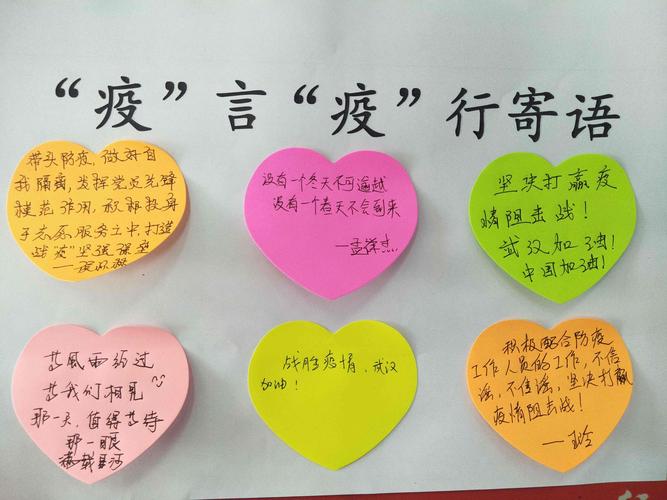 “疫”言“疫”行寄语
带头防疫，做好自
我隔离，发挥党员先锋
模范作用，积极投身
于志愿服务之中打造
战“疫”坚强堡垒
没有一个冬天不可逾越
没有一个春天不会到来
坚决打赢疫
情阻击战！
武汉加油！
中国加油！
等风雨经过
等我们相见
那一天，值得等待
那一眼
战胜疫情，武汉
加油！
积极配合防疫
工作人员的工作，不信
谣，不传谣，坚决打赢
疫情阻击战！